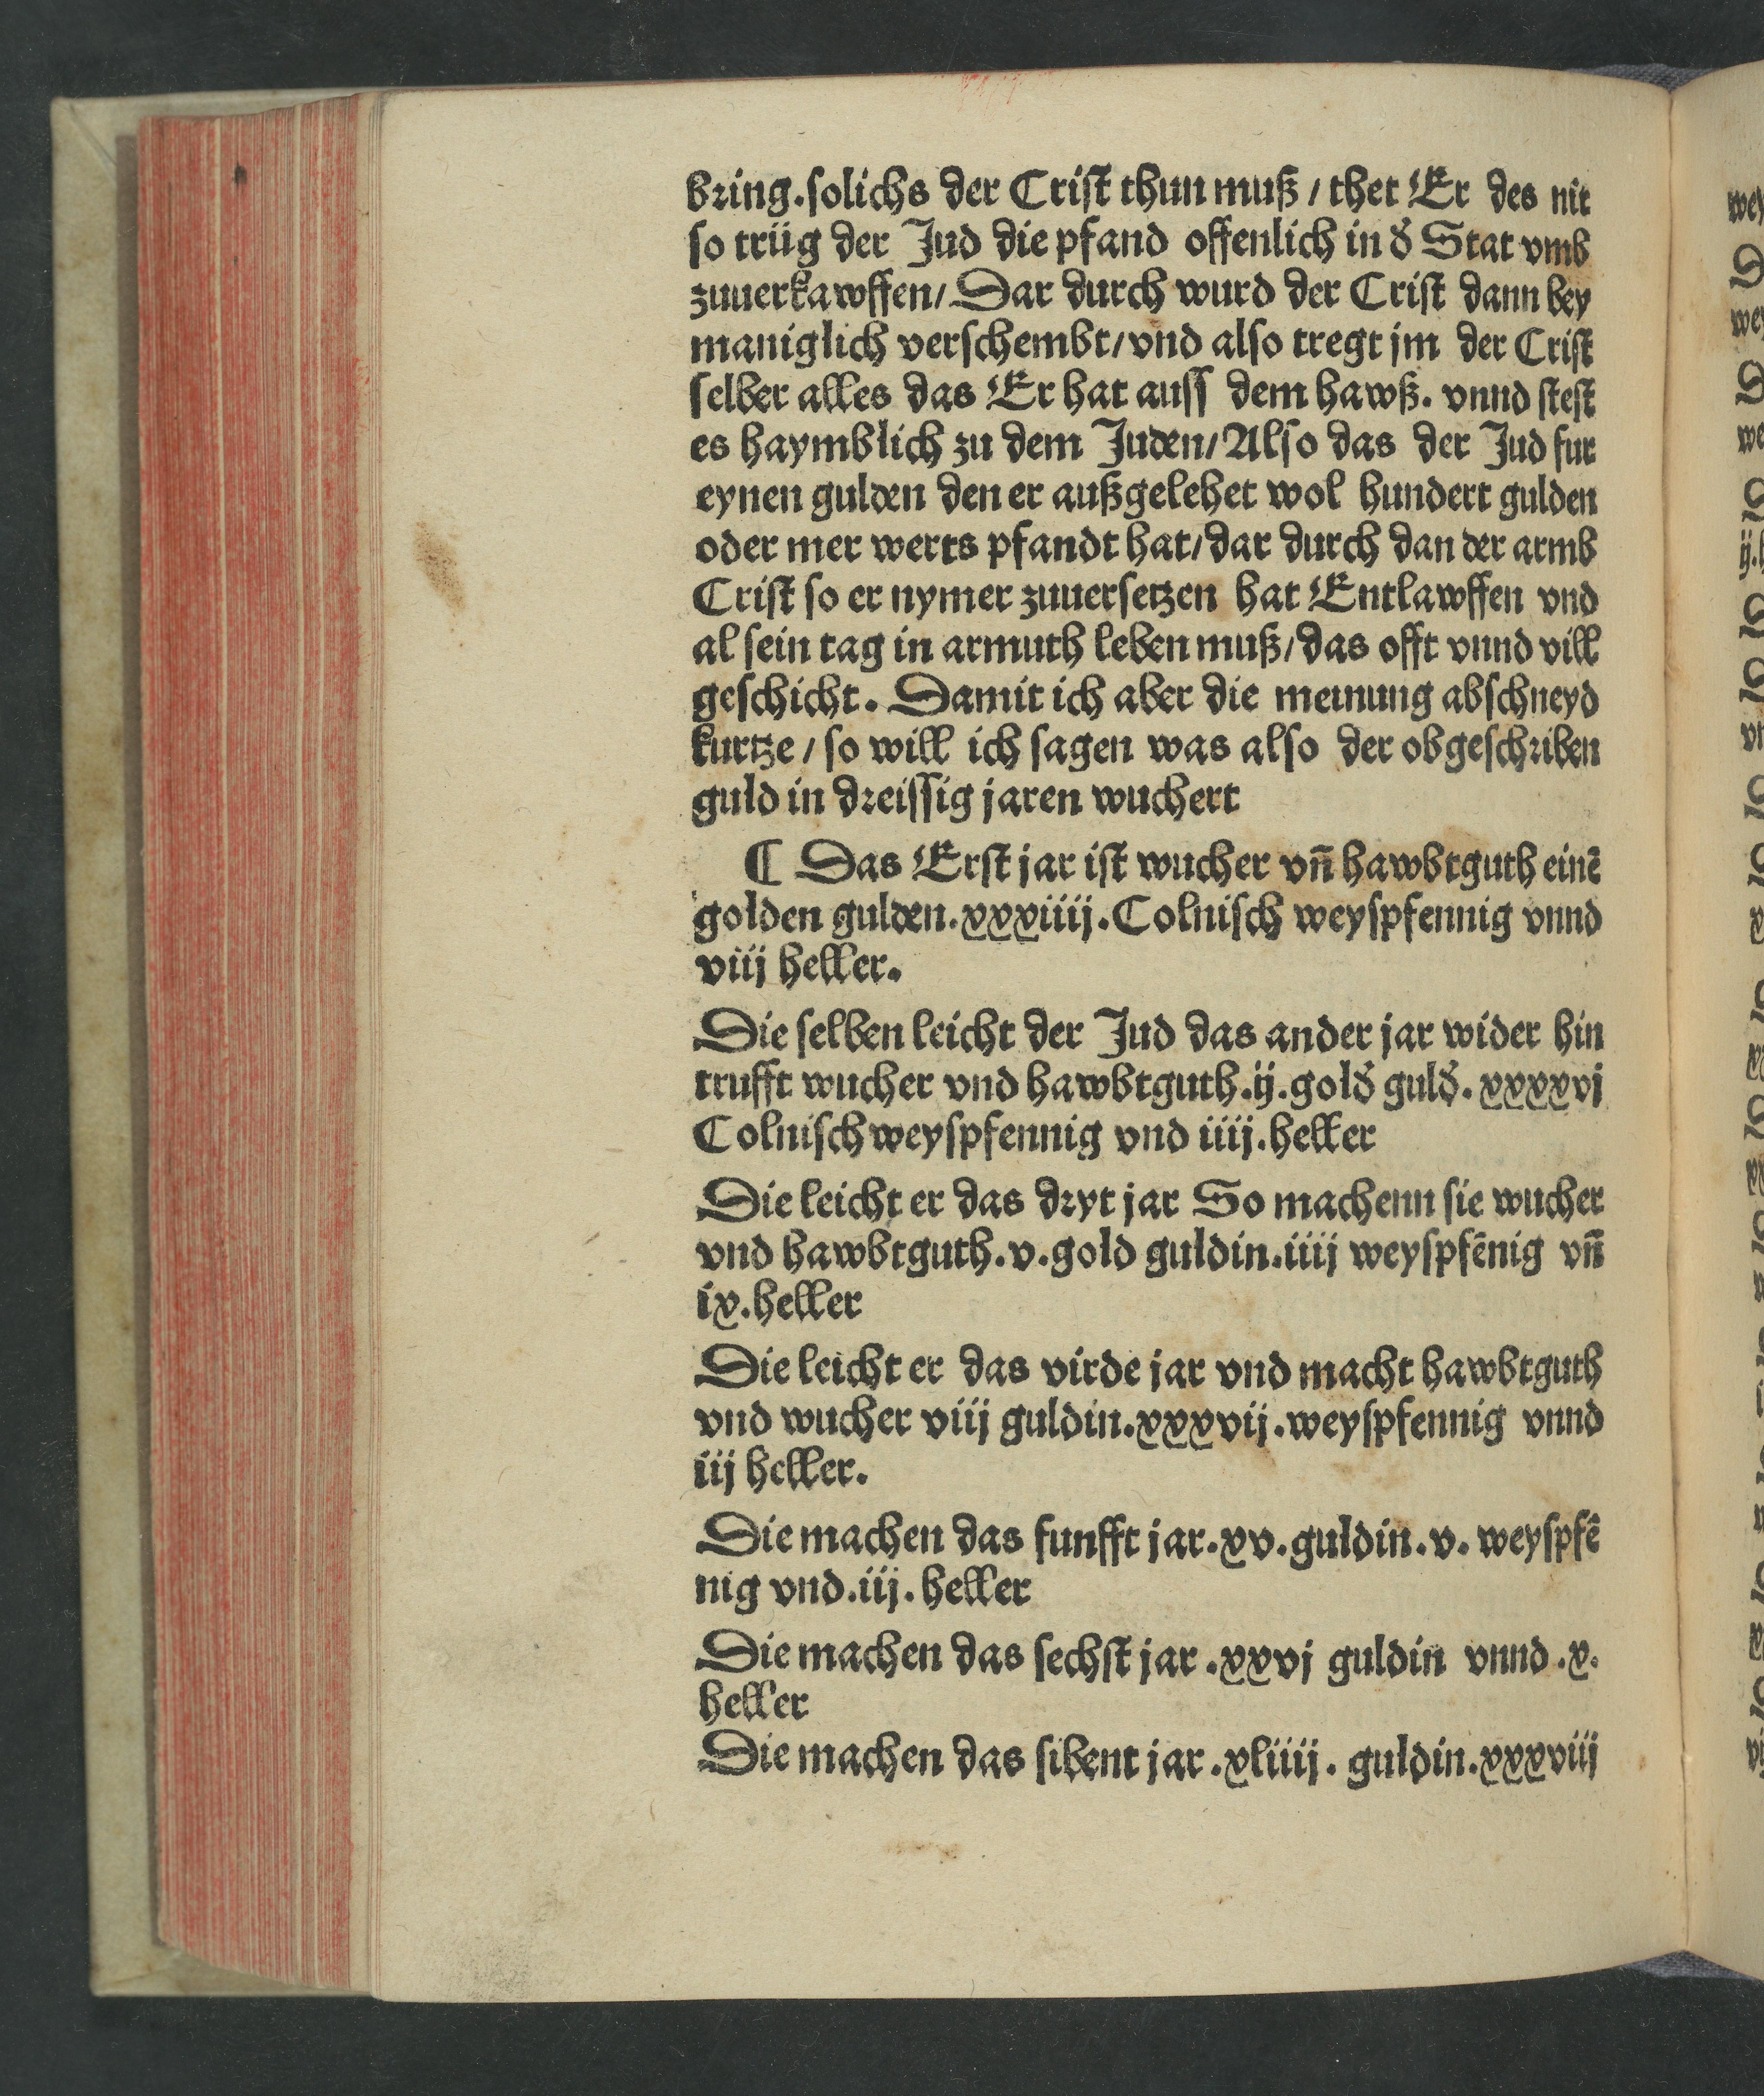 bring. solichs der Crist thun muß / thet Er des nit
so trüg der Jud die pfand offenlich in d̕ Stat vmb
zuuerkawffen / Dar durch wurd der Crist dann bey
maniglich verschembt / vnd also tregt jm der Crist
selber alles das Er hat auss dem hawß. vnnd stest
es haymblich zu dem Juden / Also das der Jud fur
eynen gulden den er außgelehet wol hundert gulden
oder mer werts pfandt hat / dar durch dan der armb
Crist so er nymer zuuersetzen hat Entlawffen vnd
al sein tag in armuth leben muß / das offt vnnd vill
geschicht. Damit ich aber die meinung abschneyd
kurtze / so will ich sagen was also der obgeschriben
guld in dreissig jaren wuchert
¶ Das Erst jar ist wucher vn̄ hawbtguth einē
golden gulden. xxxiiij. Colnisch weyspfennig vnnd
viij heller.
Die selben leicht der Jud das ander jar wider hin
trufft wucher vnd hawbtguth. ij. gold̕ guld̕. xxxxvj
Colnisch weyspfennig vnd iiij. heller
Die leicht er das dryt jar So machenn sie wucher
vnd hawbtguth. v. gold guldin. iiij weyspfēnig vn̄
ix. heller
Die leicht er das virde jar vnd macht hawbtguth
vnd wucher viij guldin. xxxvij. weyspfennig vnnd
iij heller.
Die machen das funfft jar. xv. guldin. v. weyspfē
nig vnd. iij. heller
Die machen das sechst jar . xxvj guldin vnnd . x.
heller
Die machen das sibent jar . xliiij. guldin. xxxviij